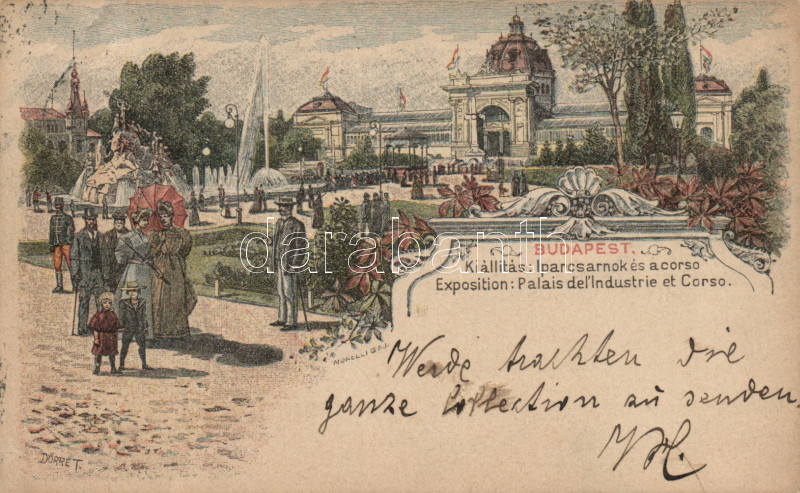 BUDAPEST.
Kiállítás: Iparcsarnok és a corso
Exposition: Palais del'Industrie et Corso.
darabanth.com
MORELLI G.
Werde trachten die
ganze Collection zu senden.
DÖRRE T.